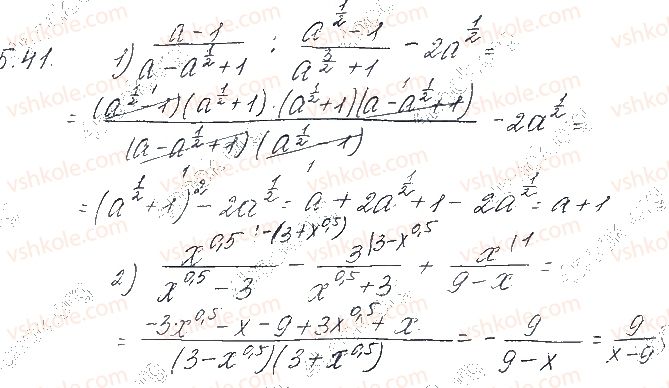 5.41. 1) (a-1)/(a-a^(1/2)+1) : (a^(1/2)-1)/(a^(3/2)+1) - 2a^(1/2) =
= ((a^(1/2)-1)(a^(1/2)+1)·(a^(1/2)+1)(a-a^(1/2)+1))/((a-a^(1/2)+1)(a^(1/2)-1)) - 2a^(1/2) =
= (a^(1/2)+1)^2 - 2a^(1/2) = a + 2a^(1/2) + 1 - 2a^(1/2) = a + 1
2) x^(0,5)/(x^(0,5)-3) |-(3+x^(0,5)) - 3/(x^(0,5)+3) |3-x^(0,5) + x/(9-x) |1 =
= (-3x^(0,5) - x - 9 + 3x^(0,5) + x)/((3-x^(0,5))(3+x^(0,5))) = - 9/(9-x) = 9/(x-9)